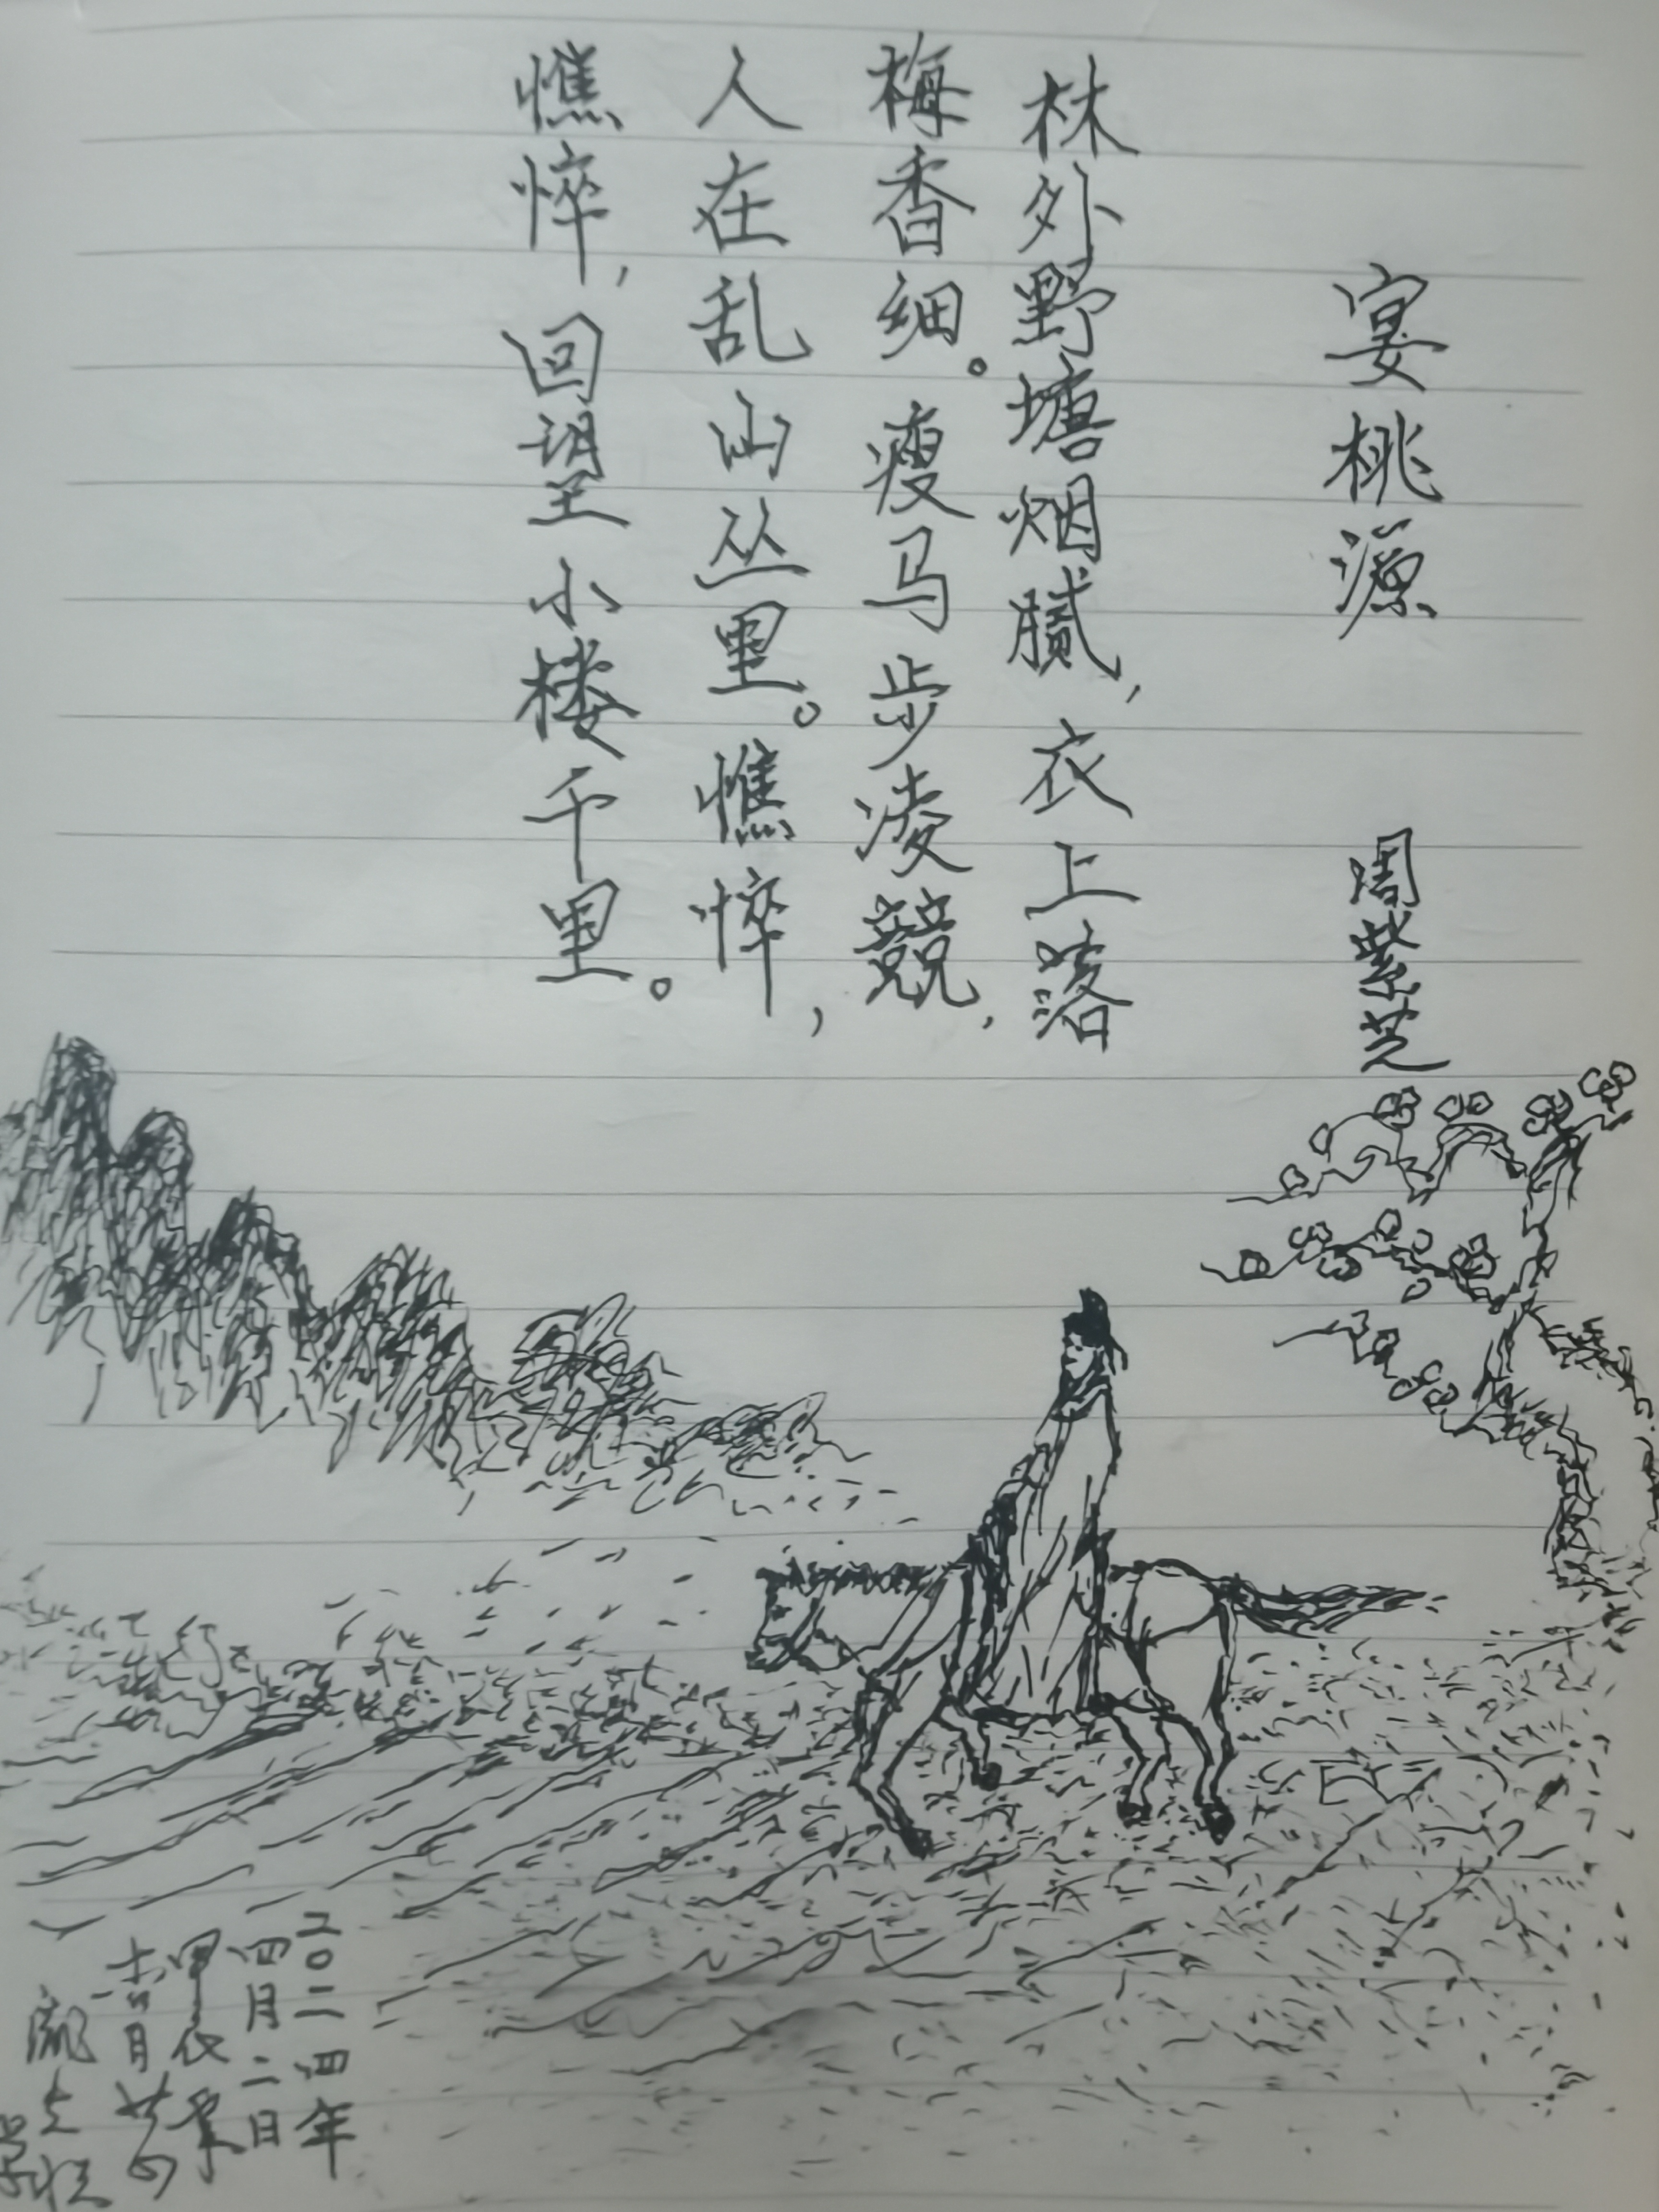 宴桃源 周紫芝
林外野塘烟腻，衣上落
梅香细。瘦马步凌兢，
人在乱山丛里。憔悴，
憔悴，回望小楼千里。
二〇二四年
四月二日
甲辰年
月廿四